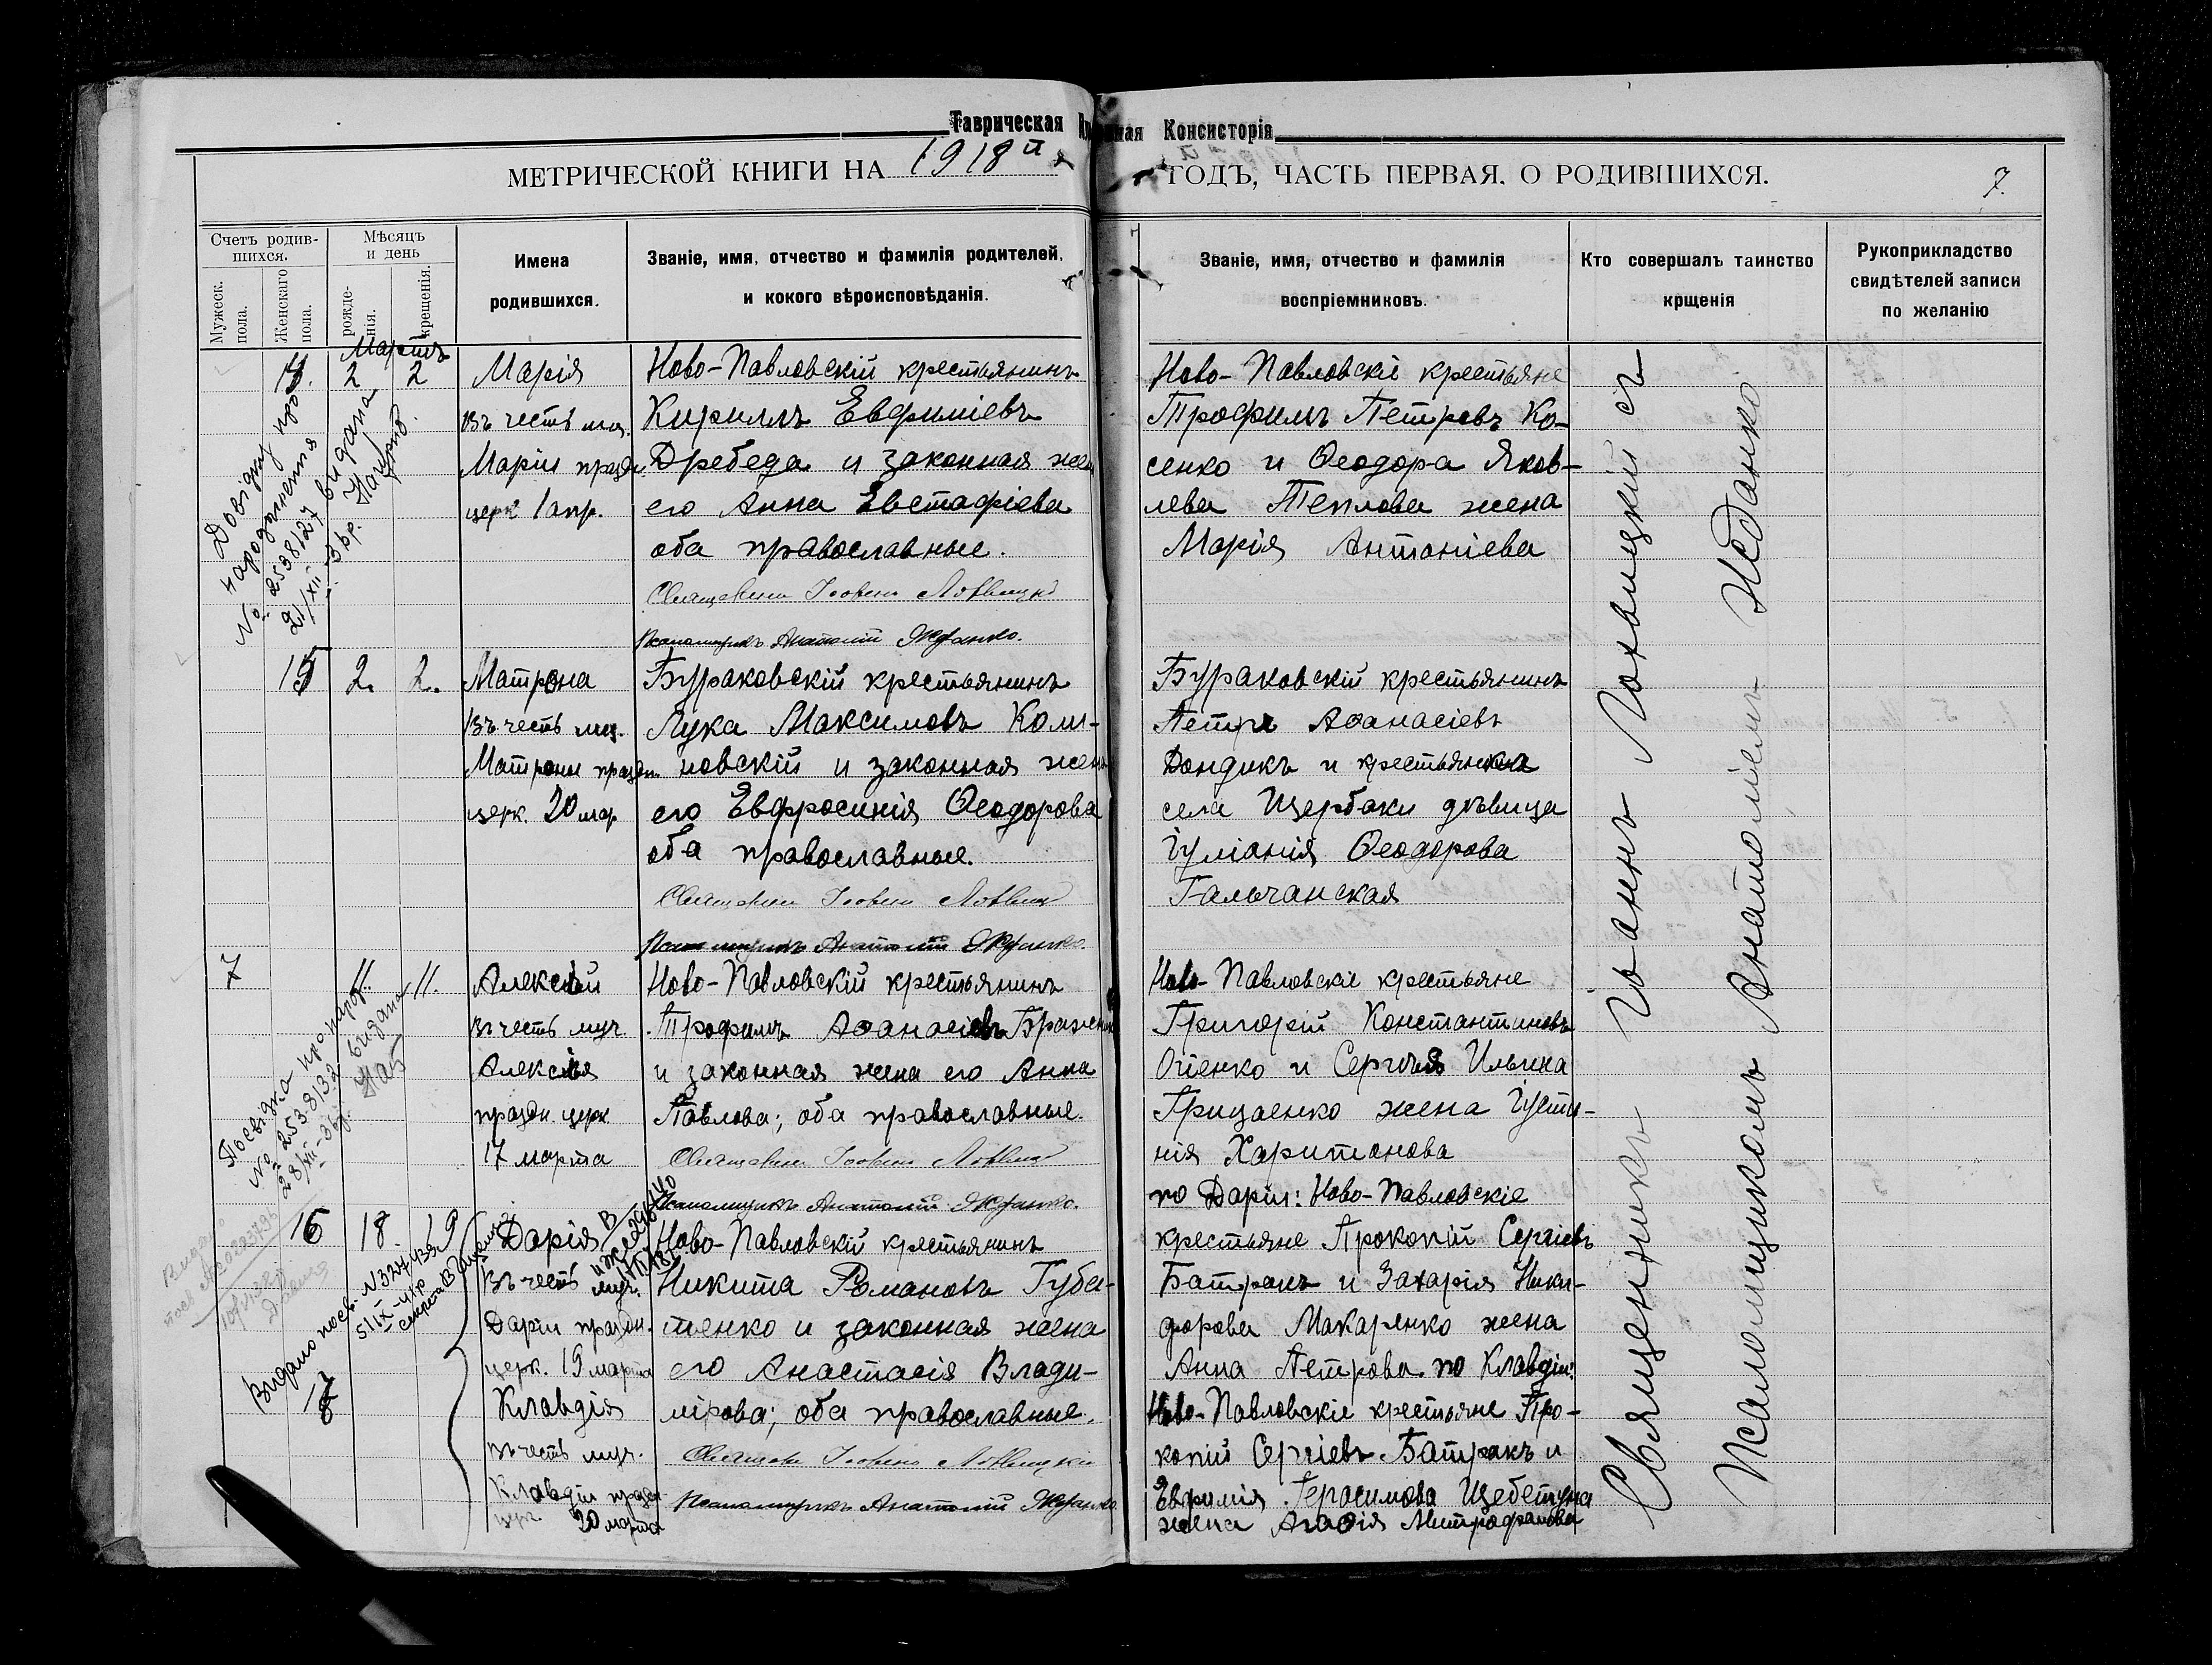 Таврическая Консисторія
МЕТРИЧЕСКОЙ КНИГИ НА 1918й ГОДЪ, ЧАСТЬ ПЕРВАЯ, О РОДИВШИХСЯ.
7.
Счетъ родив-
шихся.
Мужеск.
пола.
Женскаго
пола.
Мѣсяцъ
и день
рожде-
нія.
крещенія.
Имена
родившихся.
Званіе, имя, отчество и фамилія родителей,
и кокого вѣроисповѣданія.
Званіе, имя, отчество и фамилія
воспріемниковъ.
Кто совершалъ таинство
крщенія
Рукоприкладство
свидѣтелей записи
по желанію
Мартъ
14. 2 2
Марія
въ честь
Маріи
церк 1 апр.
Ново-Павловскій крестьянинъ
Кирилъ Евфиміевъ
Дребеда и законная жена
его Анна Евстафіева
оба православные.
Псаломщикъ Анатолій Жданко.
Ново-Павловскіе крестьяне
Трофимъ Петровъ Ко-
сенко и Ѳеодора Яков-
лева Теплова жена
Марія Антоніева
Довідку про
народження
№ 2538/27 видана
21/XII-36р.
15 2. 2.
Матрона
въ честь муч.
Матроны праздн
церк. 20 мар
Бураковскій крестьянинъ
Лука Максимовъ Кали-
новскій и законная жена
его Евфросинія Ѳеодорова
оба православные.
Псаломщикъ Анатолій Жданко.
Бураковскій крестьянинъ
Петръ Аѳанасіевъ
Дондикъ и крестьянка
села Щербаки дѣвица
Іуліанія Ѳеодорова
Гальчанская
7 11. 11.
Алексій
въ честь муч
Алексія
праздн. церк
17 марта
Ново-Павловскій крестьянинъ
Трофимъ Аѳанасіевъ
и законная жена его Анна
Павлова; оба православные.
Псаломщикъ Анатолій Жданко.
Ново-Павловскіе крестьяне
Григорій Константиновъ
Огіенко и Сергія Ильина
Грицаенко жена Іусти-
нія Харитонова
№ 2538/32 видана
28/XII-36р.
16 18. 19
Дарія
въ честь муч.
Даріи праздн.
церк. 19 марта
17
Клавдія
въ честь муч.
Клавдіи праздн
церк. 20 марта
Ново-Павловскій крестьянинъ
Никита Романовъ Губа-
тенко и законная жена
его Анастасія Влади-
мірова; оба православные.
Псаломщикъ Анатолій Жданко
по Даріи: Ново-Павловскіе
крестьяне Прокопій Сергіевъ
Батракъ и Захарія Ники-
форова Макаренко жена
Анна Петрова по Клавдіи:
Ново-Павловскіе крестьяне Про-
копій Сергіевъ Батракъ и
Евфимія Герасимова Щебетуна
жена Агафія Митрофанова
Видано посв. №
Священникъ Іоаннъ Лотвицкій съ
Псаломщикомъ Анатоліемъ Жданко.